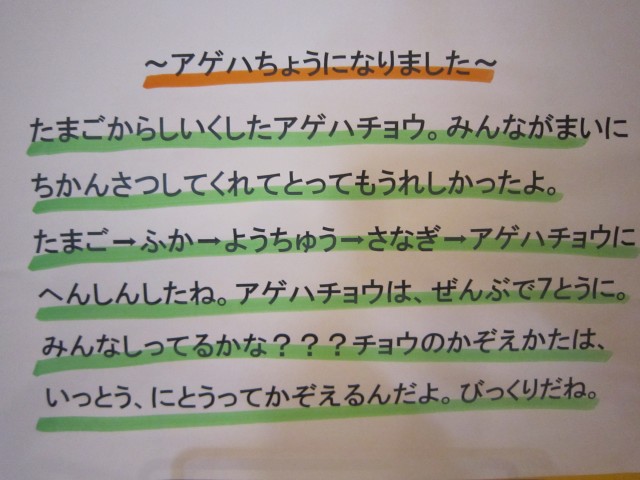 ～アゲハちょうになりました～
たまごからしいくしたアゲハチョウ。みんながまいに
ちかんさつしてくれてとってもうれしかったよ。
たまご→ふか→ようちゅう→さなぎ→アゲハチョウに
へんしんしたね。アゲハチョウは、ぜんぶで7とうに。
みんなしってるかな？？？チョウのかぞえかたは、
いっとう、にとうってかぞえるんだよ。びっくりだね。